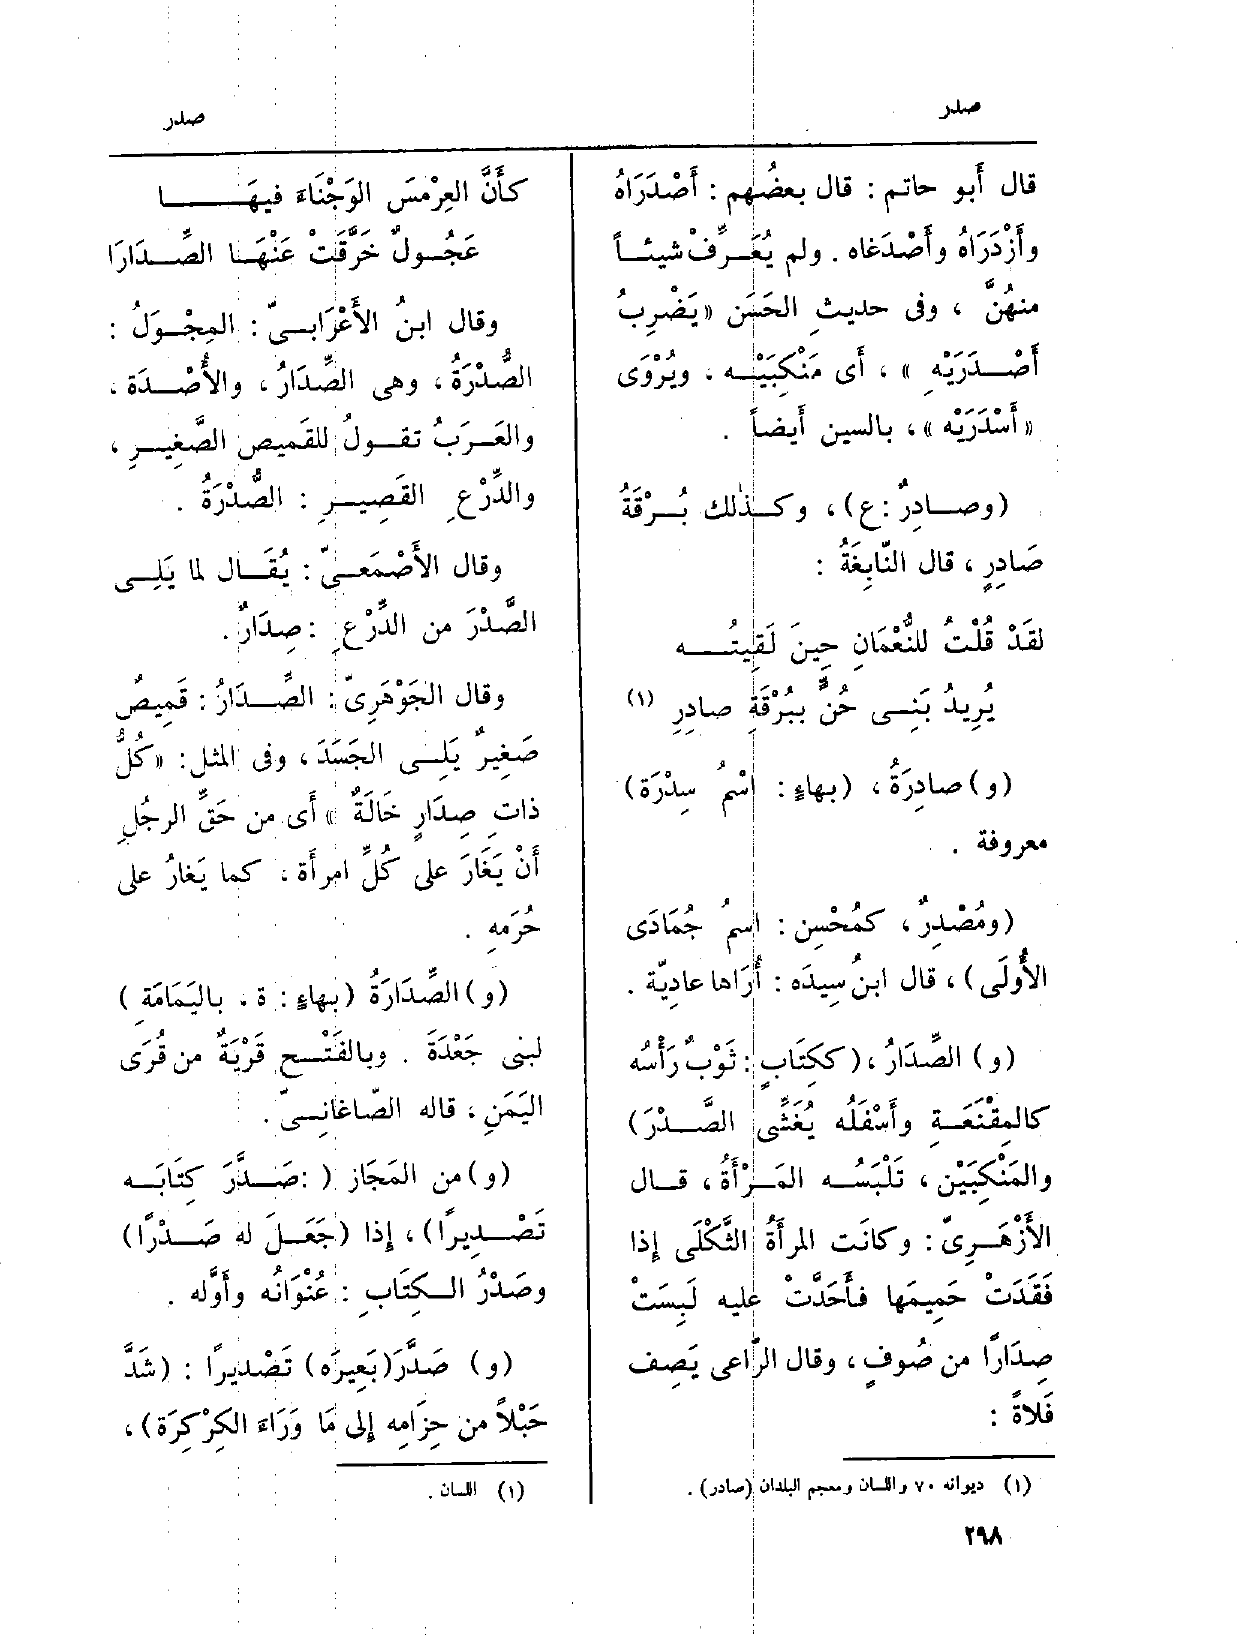 صدر
صدر
قال أَبو حاتم : قال بعضُهم : أَصْدَرَاهُ
وأَزْدَرَاهُ وأَصْدَغاه . ولم يُعَرِّفْ شيئاً
منهنَّ ، وفى حديثِ الحَسَن «يَضْرِبُ
أَصْدَرَيْه » ، أَى مَنْكِبَيْه ، ويُرْوَى
«أَسْدَرَيْه » ، بالسين أَيضاً .
(وصادِرٌ :ع) ، وكذٰلك بُرْقَةُ
صَادِرٍ ، قال النّابِغَةُ :
لقَدْ قُلْتُ للنُّعْمَانِ حِينَ لَقِيتُه
يُرِيدُ بَنِى حُنٍّ ببُرْقَةِ صادِرِ (١)
(و)صادِرَةُ ، (بهاءٍ : اسْمُ سِدْرَة)
معروفة .
(ومُصْدِرٌ ، كمُحْسِن : اسمُ جُمَادَى
الأُولَى) ، قال ابنُ سِيدَه : أُرَاها عادِيّة .
(و) الصِّدَارُ ، (ككِتَابٍ : ثَوْبٌ رَأْسُه
كالمِقْنَعَةِ وأَسْفَلُه يُغَشِّى الصَّدْرَ)
والمَنْكِبَيْن ، تَلْبَسُه المَرْأَةُ ، قال
الأَزْهَرِىّ : وكانَت المرأَةُ الثَّكْلَى إِذا
فَقَدَتْ حَمِيمَها فأَحَدَّتْ عليه لَبِسَتْ
صِدَارًا من صُوفٍ ، وقال الرّاعى يَصِف
فَلاةً :
(١) ديوانه ٧٠ واللسان ومعجم البلدان (صادر) .
كأَنَّ العِرْمِسَ الوَجْنَاءَ فيهَا
عَجُولٌ خَرَّقَتْ عَنْهَا الصِّدَارَا
وقال ابنُ الأَعْرَابِىّ : المِجْوَلُ :
الصُّدْرَةُ ، وهى الصِّدَارُ ، والأُصْدَة ،
والعَرَبُ تقولُ للقَمِيصِ الصَّغِيرِ ،
والدِّرْعِ القَصِيرِ : الصُّدْرَةُ .
وقال الأَصْمَعِىّ : يُقَال لما يَلِى
الصَّدْرَ من الدِّرْعِ :صِدَارٌ .
وقال الجَوْهَرِىّ : الصِّدَارُ : قَمِيصٌ
صَغِيرٌ يَلِى الجَسَدَ ، وفى المثل : «كُلُّ
ذاتِ صِدَارٍ خَالَةٌ » أَى من حَقِّ الرجُلِ
أَنْ يَغَارَ على كُلِّ امرأَة ، كما يَغارُ على
حُرَمِه .
(و)الصِّدَارَةُ (بهاءٍ : ة ، باليَمَامَة )
لبنى جَعْدَةَ . وبالفَتْحِ قَرْيَةٌ من قُرَى
اليَمَنِ ، قاله الصّاغانِىّ .
(و)من المَجَاز ( :صَدَّرَ كِتَابَه
تَصْدِيرًا) ، إِذا (جَعَلَ له صَدْرًا)
وصَدْرُ الكِتَابِ : عُنْوَانُه وأَوَّله .
(و) صَدَّرَ(بَعِيرَه) تَصْدِيرًا : (شَدَّ
حَبْلاً من حِزَامِه إِلى مَا وَرَاءَ الكِرْكِرَة) ،
(١) اللسان .
٢٩٨